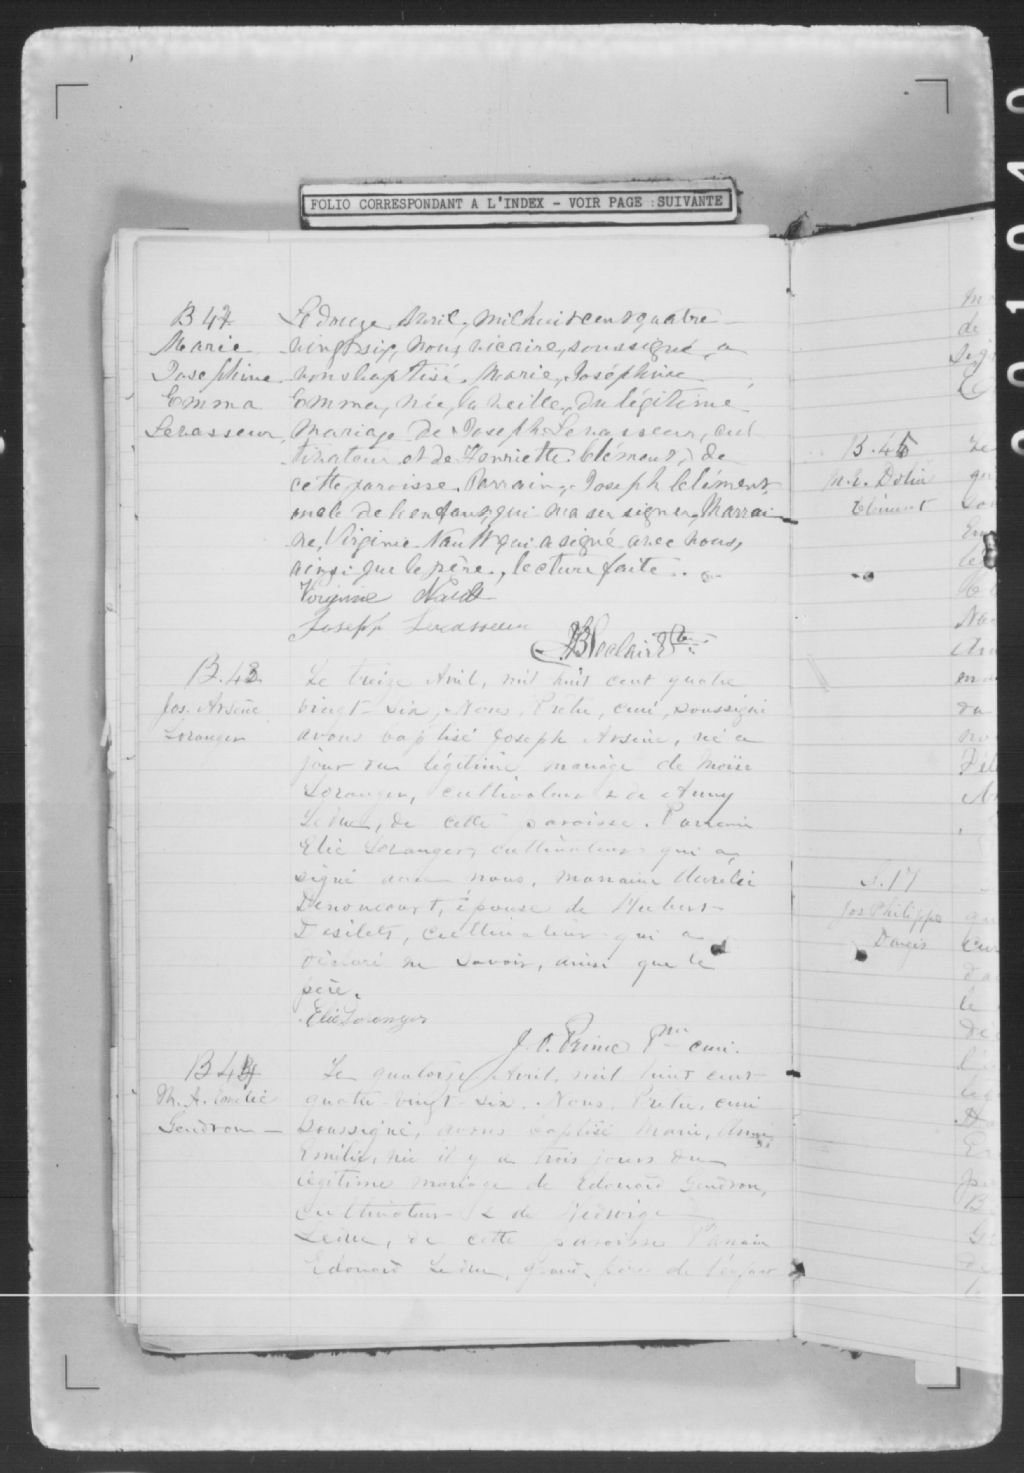 FOLIO CORRESPONDANT A L'INDEX - VOIR PAGE SUIVANTE
B 42
Marie
Josephine
Emma
Levasseur
Le douze Avril, mil huit cent quatre
vingt six, nous vicaire, soussigné, a
vons baptisé, Marie, Joséphine
Emma, née, la veille, du légitime
mariage de Joseph Levasseur, cul
tivateur et de Henriette Clément, de
cette paroisse. Parrain, Joseph Clément
oncle de l'enfant, qui n'a su signer, Marrai
ne, Virginie Nault qui a signé avec nous,
ainsi que le père, lecture faite.
Virginie Nault
Joseph Levasseur
B. 43
Jos. Arsène
Loranger
Le treize Avril, mil huit cent quatre
vingt-six, Nous, Prêtre, curé, soussigné
avons baptisé Joseph Arsène, né ce
jour du légitime mariage de Moïse
Loranger, cultivateur & de Anny
Leduc, de cette paroisse. Parrain
Elie Loranger, cultivateur qui a
signé avec nous, marraine Aurélie
Denoncourt, épouse de Hubert
Désilets, cultivateur qui a
déclaré ne savoir, ainsi que le
père.
Elie Loranger
J. C. Prince Ptre curé.
B 44
M. A. Emilie
Gendron
Le quatorze Avril, mil huit cent
quatre-vingt-six, Nous, Prêtre, curé
soussigné, avons baptisé Marie, Anna
Emilie, née il y a trois jours du
légitime mariage de Edouard Gendron,
cultivateur & de Hedwige
Leduc, de cette paroisse Parrain
Edouard Leduc, grand-père de l'enfant
B. 45
M. E. Délia
Clément
S. 17
Jos Philippe